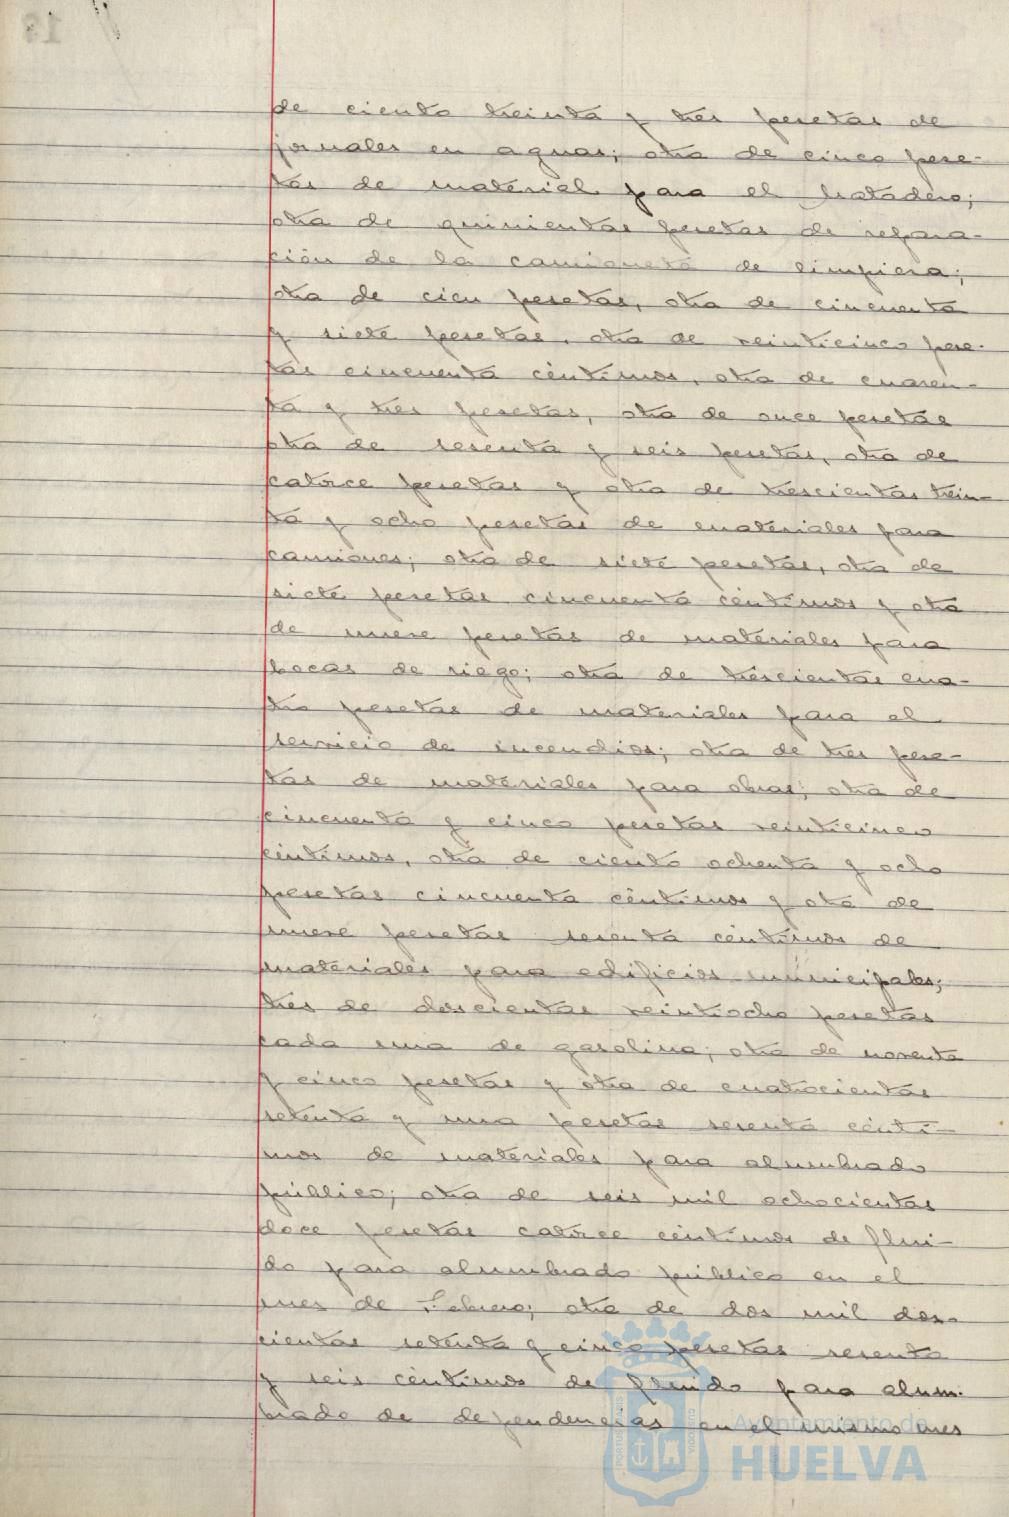 de ciento treinta y tres pesetas de
jornales en aguas; otra de cinco pese-
tas de material para el matadero;
otra de quinientas pesetas de repara-
ción de la camioneta de limpieza;
otra de cien pesetas, otra de cincuenta
y siete pesetas, otra de veinticinco pese-
tas cincuenta céntimos, otra de cuaren-
ta y tres pesetas, otra de once pesetas
otra de sesenta y seis pesetas, otra de
catorce pesetas y otra de trescientas trein-
ta y ocho pesetas de materiales para
camiones; otra de siete pesetas, otra de
siete pesetas cincuenta céntimos y otra
de nueve pesetas de materiales para
bocas de riego; otra de trescientas cua-
tro pesetas de materiales para el
servicio de incendios; otra de tres pese-
tas de materiales para obras; otra de
cincuenta y cinco pesetas veinticinco
céntimos, otra de ciento ochenta y ocho
pesetas cincuenta céntimos y otra de
nueve pesetas sesenta céntimos de
materiales para edificios municipales;
tres de doscientas veintiocho pesetas
cada una de gasolina; otra de noventa
y cinco pesetas y otra de cuatrocientas
setenta y una pesetas sesenta cénti-
mos de materiales para alumbrado
público; otra de seis mil ochocientas
doce pesetas catorce céntimos de flui-
do para alumbrado público en el
mes de Febrero; otra de dos mil dos-
cientas setenta y cinco pesetas sesenta
y seis céntimos de fluido para alum-
brado de dependencias en el mismo mes
Ayuntamiento de
HUELVA